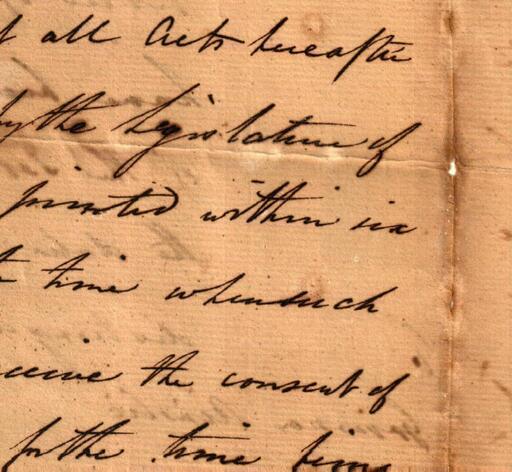 all Acts hereafter
by the Legislature of
printed within six
time when such
the consent of
for the time being